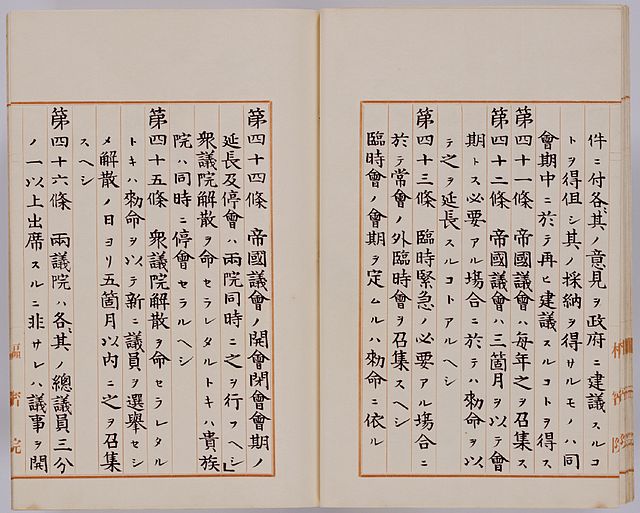 件ニ付各〻其ノ意見ヲ政府ニ建議スルコ
トヲ得但シ其ノ採納ヲ得サルモノハ同
會期中ニ於テ再ヒ建議スルコトヲ得ス
第四十一條　帝國議會ハ毎年之ヲ召集ス
第四十二條　帝國議會ハ三箇月ヲ以テ會
期トス必要アル場合ニ於テハ勅命ヲ以
テ之ヲ延長スルコトアルヘシ
第四十三條　臨時緊急ノ必要アル場合ニ
於テ常會ノ外臨時會ヲ召集スヘシ
臨時會ノ會期ヲ定ムルハ勅命ニ依ル
第四十四條　帝國議會ノ開會閉會會期ノ
延長及停會ハ兩院同時ニ之ヲ行フヘシ」
衆議院解散ヲ命セラレタルトキハ貴族
院ハ同時ニ停會セラルヘシ
第四十五條　衆議院解散ヲ命セラレタル
トキハ勅命ヲ以テ新ニ議員ヲ選擧セシ
メ解散ノ日ヨリ五箇月以内ニ之ヲ召集
スヘシ
第四十六條　兩議院ハ各〻其ノ總議員三分
ノ一以上出席スルニ非サレハ議事ヲ開